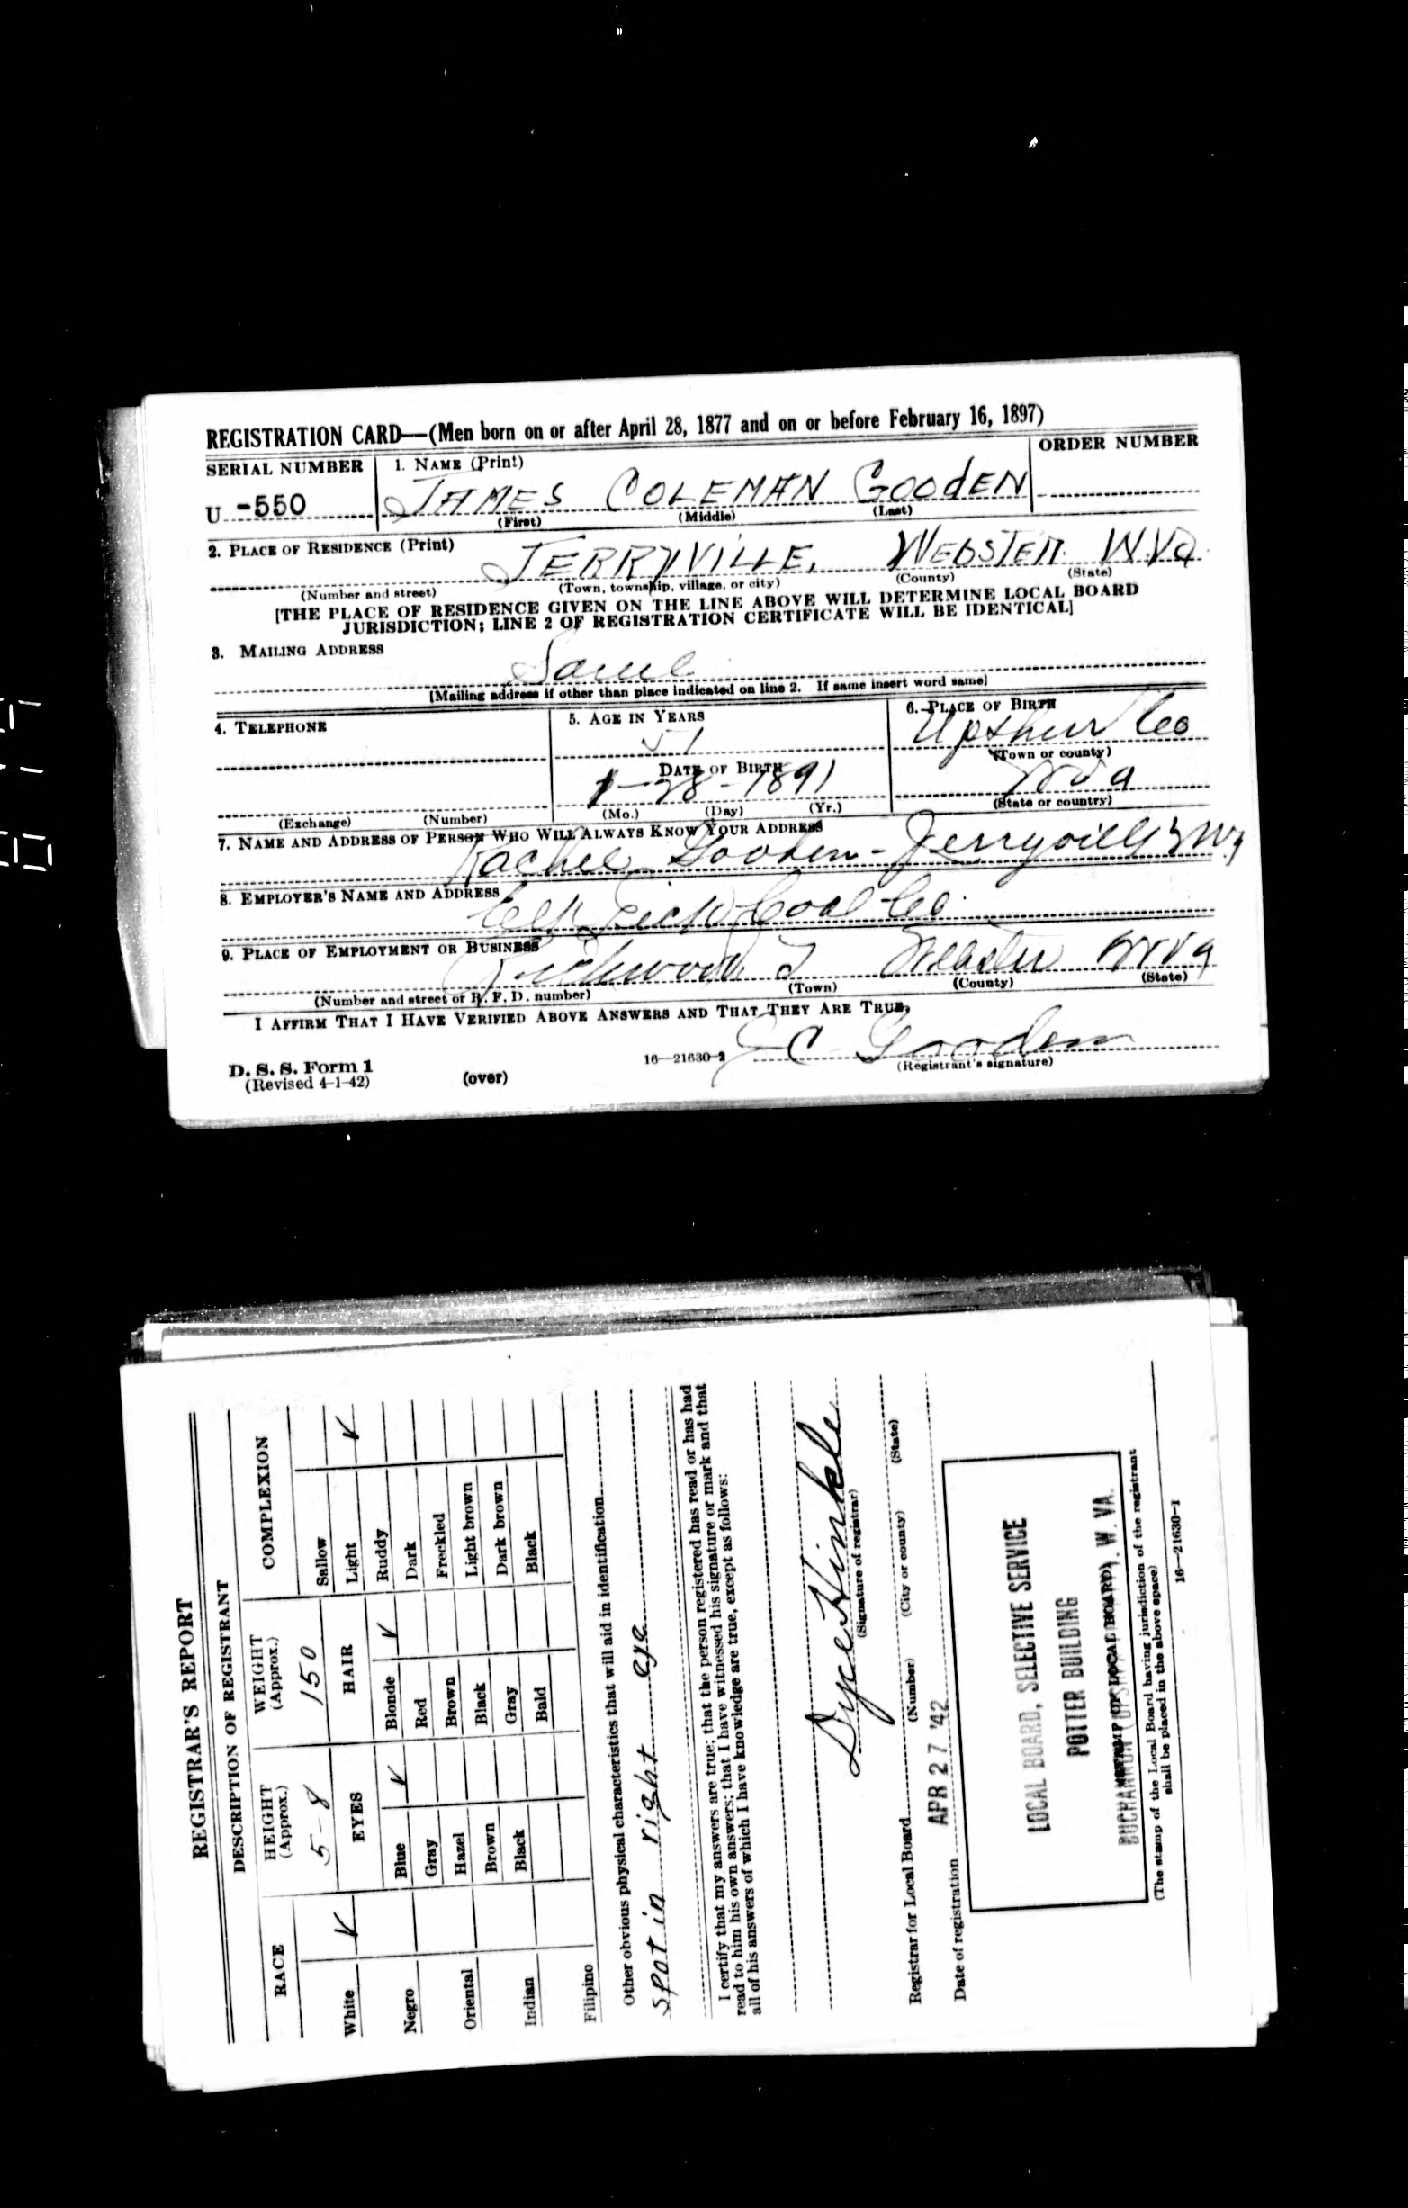 REGISTRATION CARD—(Men born on or after April 28, 1877 and on or before February 16, 1897)
SERIAL NUMBER
1. NAME (Print)
ORDER NUMBER
U -550
JAMES COLEMAN GOOdEN
(First) (Middle) (Last)
2. PLACE OF RESIDENCE (Print)
JERRYVILLE, WEBSTER W.Va.
(Number and street) (Town, township, village, or city) (County) (State)
[THE PLACE OF RESIDENCE GIVEN ON THE LINE ABOVE WILL DETERMINE LOCAL BOARD
JURISDICTION; LINE 2 OF REGISTRATION CERTIFICATE WILL BE IDENTICAL]
3. MAILING ADDRESS
Same
[Mailing address if other than place indicated on line 2. If same insert word same]
4. TELEPHONE
5. AGE IN YEARS
6. PLACE OF BIRTH
51
Upshur Co
(Town or county)
DATE OF BIRTH
1-28-1891
W Va
(Exchange) (Number)
(Mo.) (Day) (Yr.)
(State or country)
7. NAME AND ADDRESS OF PERSON WHO WILL ALWAYS KNOW YOUR ADDRESS
Rachel Gooden - Jerryville
8. EMPLOYER'S NAME AND ADDRESS
Elk Lick Coal Co.
9. PLACE OF EMPLOYMENT OR BUSINESS
Richwood Webster W Va
(Number and street or R. F. D. number) (Town) (County) (State)
I AFFIRM THAT I HAVE VERIFIED ABOVE ANSWERS AND THAT THEY ARE TRUE.
J C Gooden
D. S. S. Form 1
(Revised 4-1-42)
(over)
16—21630-2
(Registrant's signature)
REGISTRAR'S REPORT
DESCRIPTION OF REGISTRANT
RACE
HEIGHT (Approx.)
WEIGHT (Approx.)
COMPLEXION
5-8
150
EYES
HAIR
White ✓
Negro
Oriental
Indian
Filipino
Blue ✓
Gray
Hazel
Brown
Black
Blonde ✓
Red
Brown
Black
Gray
Bald
Sallow
Light ✓
Ruddy
Dark
Freckled
Light brown
Dark brown
Black
Other obvious physical characteristics that will aid in identification
spot in right eye
I certify that my answers are true; that the person registered has read or has had
read to him his own answers; that I have witnessed his signature or mark and that
all of his answers of which I have knowledge are true, except as follows:
Dyce Hinkle
(Signature of registrar)
Registrar for Local Board
(Number) (City or county) (State)
Date of registration APR 27 '42
LOCAL BOARD, SELECTIVE SERVICE
POTTER BUILDING
BUCHANNON (UPSHUR) W. VA.
(STAMP OF LOCAL BOARD)
(The stamp of the Local Board having jurisdiction of the registrant
shall be placed in the above space)
16—21630-1